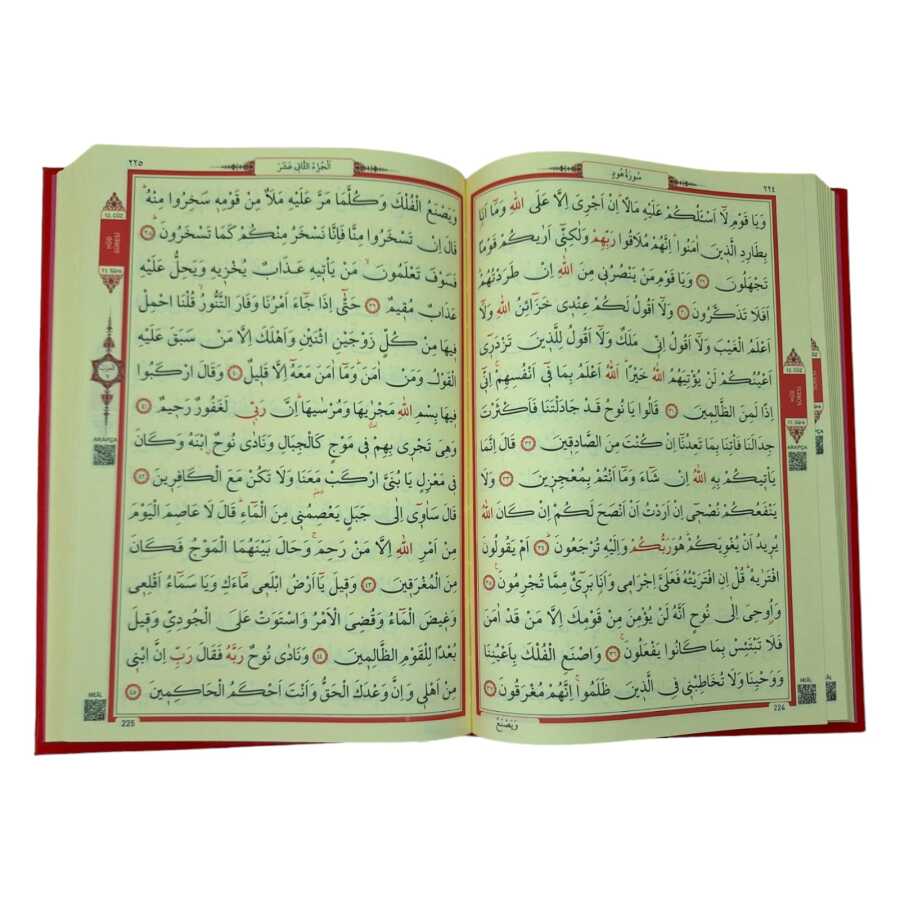 ٢٢٤
سُورَةُ هُودٍ
وَيَا قَوْمِ لَا اَسْـَٔلُكُمْ عَلَيْهِ مَالًا اِنْ اَجْرِىَ اِلَّا عَلَى اللّٰهِ وَمَٓا اَنَا۬
بِطَارِدِ الَّذ۪ينَ اٰمَنُواۜ اِنَّهُمْ مُلَاقُوا رَبِّهِمْ وَلٰكِنّ۪ٓي اَرٰيكُمْ قَوْمًا
تَجْهَلُونَ ﴿٢٩﴾ وَيَا قَوْمِ مَنْ يَنْصُرُن۪ي مِنَ اللّٰهِ اِنْ طَرَدْتُهُمْۜ
اَفَلَا تَذَكَّرُونَ ﴿٣٠﴾ وَلَٓا اَقُولُ لَكُمْ عِنْد۪ي خَزَٓائِنُ اللّٰهِ وَلَٓا
اَعْلَمُ الْغَيْبَ وَلَٓا اَقُولُ اِنّ۪ي مَلَكٌ وَلَٓا اَقُولُ لِلَّذ۪ينَ تَزْدَر۪ٓي
اَعْيُنُكُمْ لَنْ يُؤْتِيَهُمُ اللّٰهُ خَيْرًاۜ اَللّٰهُ اَعْلَمُ بِمَا ف۪ٓي اَنْفُسِهِمْۚ اِنّ۪ٓي
اِذًا لَمِنَ الظَّالِم۪ينَ ﴿٣١﴾ قَالُوا يَا نُوحُ قَدْ جَادَلْتَنَا فَاَكْثَرْتَ
جِدَالَنَا فَأْتِنَا بِمَا تَعِدُنَٓا اِنْ كُنْتَ مِنَ الصَّادِق۪ينَ ﴿٣٢﴾ قَالَ اِنَّمَا
يَأْت۪يكُمْ بِهِ اللّٰهُ اِنْ شَٓاءَ وَمَٓا اَنْتُمْ بِمُعْجِز۪ينَ ﴿٣٣﴾ وَلَا
يَنْفَعُكُمْ نُصْح۪ٓي اِنْ اَرَدْتُ اَنْ اَنْصَحَ لَكُمْ اِنْ كَانَ اللّٰهُ
يُر۪يدُ اَنْ يُغْوِيَكُمْۜ هُوَ رَبُّكُمْ وَاِلَيْهِ تُرْجَعُونَۜ ﴿٣٤﴾ اَمْ يَقُولُونَ
افْتَرٰيهُۜ قُلْ اِنِ افْتَرَيْتُهُ فَعَلَيَّ اِجْرَام۪ي وَاَنَا۬ بَر۪ٓيءٌ مِمَّا تُجْرِمُونَ۟ ﴿٣٥﴾
وَاُو۫حِيَ اِلٰى نُوحٍ اَنَّهُ لَنْ يُؤْمِنَ مِنْ قَوْمِكَ اِلَّا مَنْ قَدْ اٰمَنَ
فَلَا تَبْتَئِسْ بِمَا كَانُوا يَفْعَلُونَۚ ﴿٣٦﴾ وَاصْنَعِ الْفُلْكَ بِاَعْيُنِنَا
وَوَحْيِنَا وَلَا تُخَاطِبْن۪ي فِي الَّذ۪ينَ ظَلَمُواۚ اِنَّهُمْ مُغْرَقُونَ ﴿٣٧﴾
وَيَصْنَعُ
224
12. CÜZ
11. Sûre
ARAPÇA
MEÂL
٢٢٥
اَلْجُزْءُ الثَّانِي عَشَرَ
وَيَصْنَعُ الْفُلْكَ وَكُلَّمَا مَرَّ عَلَيْهِ مَلَأٌ مِنْ قَوْمِه۪ سَخِرُوا مِنْهُۜ
قَالَ اِنْ تَسْخَرُوا مِنَّا فَاِنَّا نَسْخَرُ مِنْكُمْ كَمَا تَسْخَرُونَۜ ﴿٣٨﴾
فَسَوْفَ تَعْلَمُونَۙ مَنْ يَأْت۪يهِ عَذَابٌ يُخْز۪يهِ وَيَحِلُّ عَلَيْهِ
عَذَابٌ مُق۪يمٌ ﴿٣٩﴾ حَتّٰٓى اِذَا جَٓاءَ اَمْرُنَا وَفَارَ التَّنُّورُۙ قُلْنَا احْمِلْ
ف۪يهَا مِنْ كُلٍّ زَوْجَيْنِ اثْنَيْنِ وَاَهْلَكَ اِلَّا مَنْ سَبَقَ عَلَيْهِ
الْقَوْلُ وَمَنْ اٰمَنَۜ وَمَٓا اٰمَنَ مَعَهُٓ اِلَّا قَل۪يلٌ ﴿٤٠﴾ وَقَالَ ارْكَبُوا
ف۪يهَا بِسْمِ اللّٰهِ مَجْرٰ۪يهَا وَمُرْسٰيهَاۜ اِنَّ رَبّ۪ي لَغَفُورٌ رَح۪يمٌ ﴿٤١﴾
وَهِيَ تَجْر۪ي بِهِمْ ف۪ي مَوْجٍ كَالْجِبَالِ وَنَادٰى نُوحٌۨ ابْنَهُ وَكَانَ
ف۪ي مَعْزِلٍ يَا بُنَيَّ ارْكَبْ مَعَنَا وَلَا تَكُنْ مَعَ الْكَافِر۪ينَ ﴿٤٢﴾
قَالَ سَاٰو۪ٓي اِلٰى جَبَلٍ يَعْصِمُن۪ي مِنَ الْمَٓاءِۜ قَالَ لَا عَاصِمَ الْيَوْمَ
مِنْ اَمْرِ اللّٰهِ اِلَّا مَنْ رَحِمَۚ وَحَالَ بَيْنَهُمَا الْمَوْجُ فَكَانَ
مِنَ الْمُغْرَق۪ينَ ﴿٤٣﴾ وَق۪يلَ يَٓا اَرْضُ ابْلَع۪ي مَٓاءَكِ وَيَا سَمَٓاءُ اَقْلِع۪ي
وَغ۪يضَ الْمَٓاءُ وَقُضِيَ الْاَمْرُ وَاسْتَوَتْ عَلَى الْجُودِيِّ وَق۪يلَ
بُعْدًا لِلْقَوْمِ الظَّالِم۪ينَ ﴿٤٤﴾ وَنَادٰى نُوحٌ رَبَّهُ فَقَالَ رَبِّ اِنَّ ابْن۪ي
مِنْ اَهْل۪ي وَاِنَّ وَعْدَكَ الْحَقُّ وَاَنْتَ اَحْكَمُ الْحَاكِم۪ينَ ﴿٤٥﴾
225
12. CÜZ
11. Sûre
ARAPÇA
MEÂL